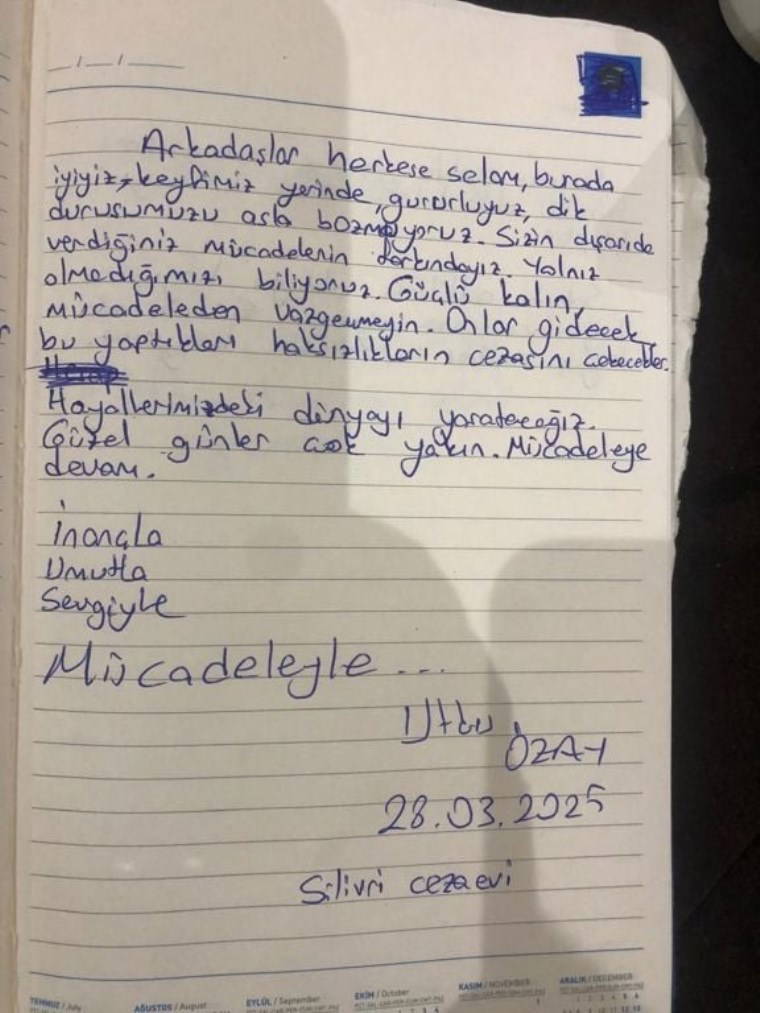 __/__/____
Arkadaşlar herkese selam, burada
iyiyiz, keyfimiz yerinde, gururluyuz, dik
duruşumuzu asla bozmuyoruz. Sizin dışarıda
verdiğiniz mücadelenin farkındayız. Yalnız
olmadığımızı biliyoruz. Güçlü kalın,
mücadeleden vazgeçmeyin. Onlar gidecek,
bu yaptıkları haksızlıkların cezasını çekecekler.
Hayallerimizdeki dünyayı yaratacağız.
Güzel günler çok yakın. Mücadeleye
devam.
İnançla
Umutla
Sevgiyle
Mücadeleyle...
Utku
ÖZAY
28.03.2025
Silivri cezaevi
TEMMUZ / July AĞUSTOS / August EYLÜL / September EKİM / October KASIM / NOVEMBER ARALIK / DECEMBER